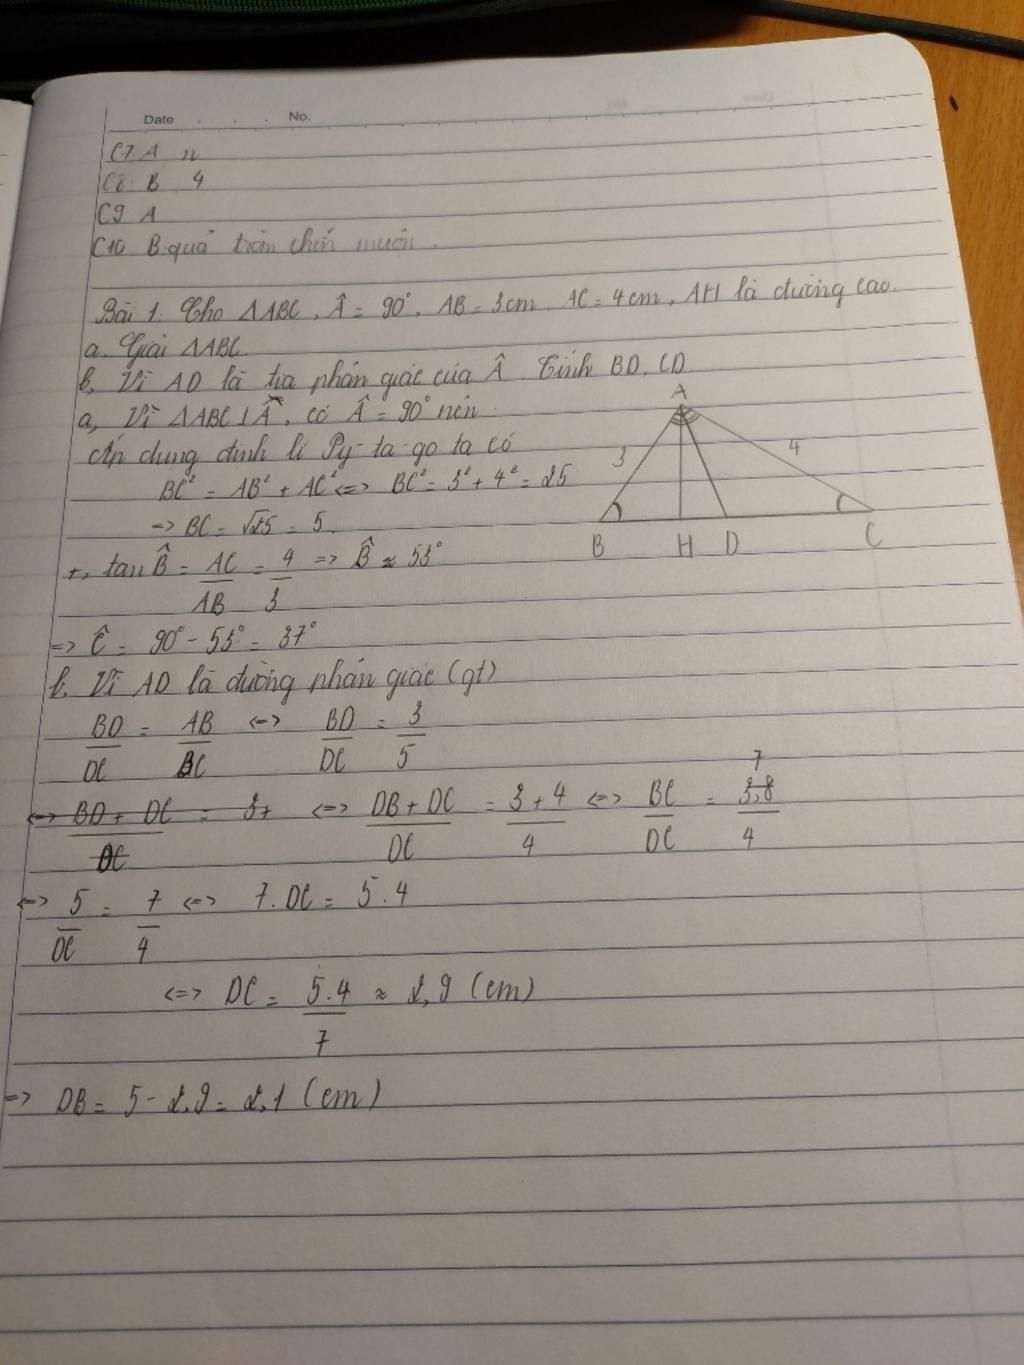 Date No.
C7. A n
C8. B 4
C9 A
C10 B. quả tròn chín muôn.
Bài 1. Cho △ABC, Â = 90°, AB = 3cm, AC = 4cm, AH là đường cao.
a. Giải △ABC.
b, Vì AD là tia phân giác của Â. Tính BD, CD.
a, Vì △ABC ⊥ Â, có Â = 90° nên
Áp dụng định lí Py-ta-go ta có
BC² = AB² + AC² <=> BC² = 3² + 4² = 25
=> BC = √25 = 5.
+, tan B̂ = AC/AB = 4/3 => B̂ ≈ 53°
=> Ĉ = 90° - 53° = 37°
b. Vì AD là đường phân giác (gt)
BD/DC = AB/BC <=> BD/DC = 3/5
<=> BD + DC/DC = 3+ <=> DB + DC/DC = 3 + 4/4 <=> BC/DC = 3,8 7/4
<=> 5/DC = 7/4 <=> 7. DC = 5.4
<=> DC = 5.4/7 ≈ 2,9 (cm)
=> DB = 5 - 2,9 = 2,1 (cm)
A
3
4
B H D C